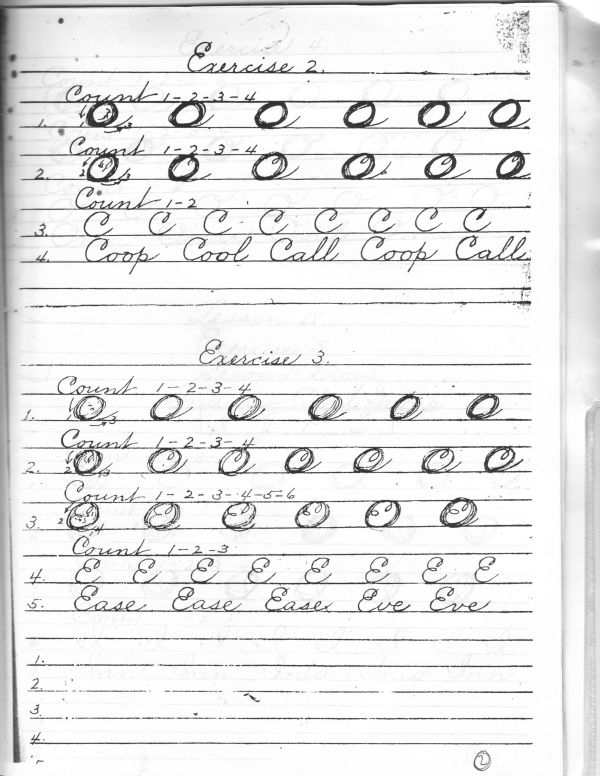 Exercise 2.
Count 1-2-3-4
1. O O O O O O
Count 1-2-3-4
2. O O O O O O
Count 1-2
3. C C C C C C C C
4. Coop Cool Call Coop Call
Exercise 3.
Count 1-2-3-4
1. O O O O O O
Count 1-2-3-4
2. O O O O O O O
Count 1-2-3-4-5-6
3. O O O O O O
Count 1-2-3
4. E E E E E E E E
5. Ease Ease Ease Eve Eve
1.
2.
3.
4.
2